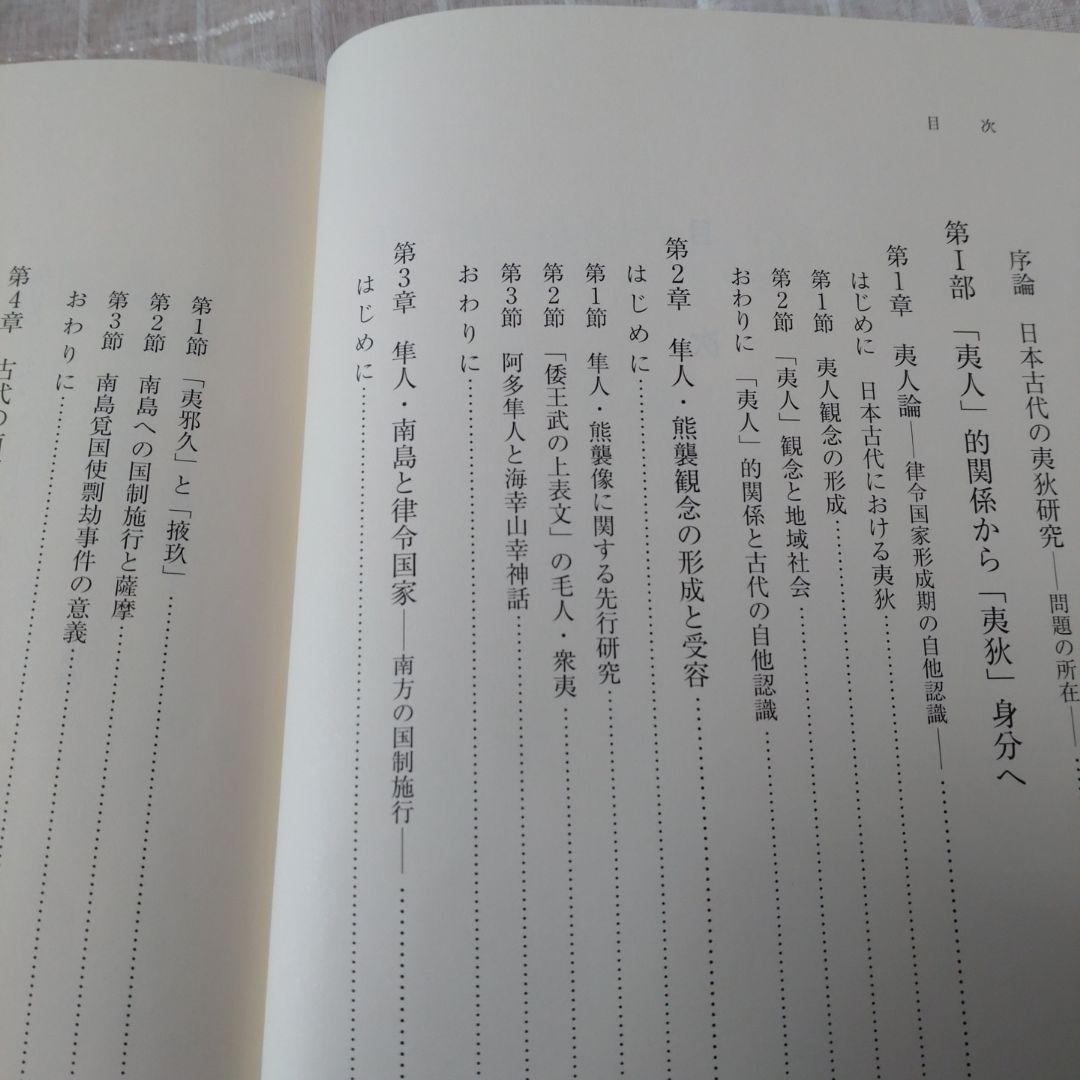 目次
序論 日本古代の夷狄研究――問題の所在――……
第Ⅰ部 「夷人」的関係から「夷狄」身分へ
第1章 夷人論――律令国家形成期の自他認識――……
はじめに 日本古代における夷狄……
第1節 夷人観念の形成……
第2節 「夷人」観念と地域社会……
おわりに 「夷人」的関係と古代の自他認識……
第2章 隼人・熊襲観念の形成と受容……
はじめに……
第1節 隼人・熊襲像に関する先行研究……
第2節 「倭王武の上表文」の毛人・衆夷……
第3節 阿多隼人と海幸山幸神話……
おわりに……
第3章 隼人・南島と律令国家――南方の国制施行――……
はじめに……
第1節 「夷邪久」と「掖玖」……
第2節 南島への国制施行と薩摩……
第3節 南島覓国使剽劫事件の意義……
おわりに……
第4章 古代の